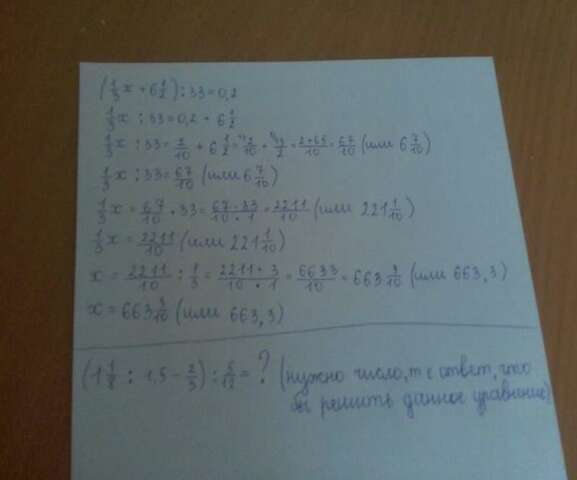 (1/3 x + 6 1/2) : 33 = 0,2
1/3 x : 33 = 0,2 + 6 1/2
1/3 x : 33 = 2/10 + 6 1/2 = 2/10 + 13/2 = 2+65/10 = 67/10 (или 6 7/10)
1/3 x : 33 = 67/10 (или 6 7/10)
1/3 x = 67/10 · 33 = 67·33/10·1 = 2211/10 (или 221 1/10)
1/3 x = 2211/10 (или 221 1/10)
x = 2211/10 : 1/3 = 2211·3/10·1 = 6633/10 = 663 3/10 (или 663,3)
x = 663 3/10 (или 663,3)
: 1,5 - 2/3) : = ? (нужно число, т е ответ, что
бы решить данное уравнение)